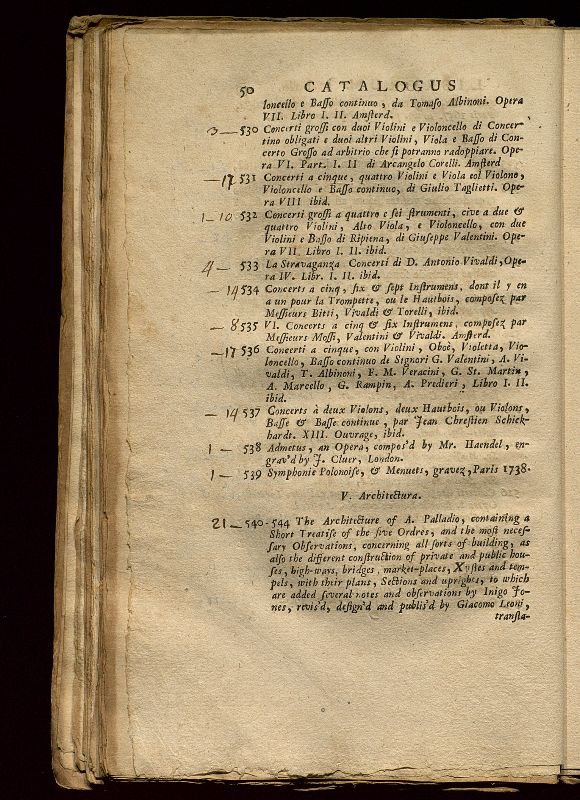 50 CATALOGUS
loncello e Baſſo continuo, da Tomaſo Albinoni. Opera
VII. Libro I. II. Amſterd.
3 — 530 Concerti groſſi con duoi Violini e Violoncello di Concer-
tino obligati e duoi altri Violini, Viola e Baſſo di Con-
certo Groſſo ad arbitrio che ſi potranno radoppiare. Ope-
ra VI. Part. I. II di Arcangelo Corelli. Amſterd
— 17 531 Concerti a cinque, quattro Violini e Viola col Violono,
Violoncello e Baſſo continuo, di Giulio Taglietti. Ope-
ra VIII ibid.
1 — 10 532 Concerti groſſi a quattro e ſei ſtrumenti, cive a due &
quattro Violini, Alto Viola, e Violoncello, con due
Violini e Baſſo di Ripiena, di Giuſeppe Valentini. Ope-
ra VII. Libro I. II. ibid.
4 — 533 La Stravaganza Concerti di D. Antonio Vivaldi, Ope-
ra IV. Libr. I. II. ibid.
— 14 534 Concerts a cinq, ſix & ſept Inſtrumens, dont il y en
a un pour la Trompette, ou le Hautbois, compoſez par
Meſſieurs Bitti, Vivaldi & Torelli, ibid.
— 8 535 VI. Concerts a cinq & ſix Inſtrumens, compoſez par
Meſſieurs Moſſi, Valentini & Vivaldi. Amſterd.
— 17 536 Concerti a cinque, con Violini, Oboè, Violetta, Vio-
loncello, Baſſo continuo de Signori G. Valentini, A. Vi-
valdi, T. Albinoni, F. M. Veracini, G. St. Martin,
A. Marcello, G. Rampin, A. Predieri, Libro I. II.
ibid.
— 14 537 Concerts à deux Violons, deux Hautbois, ou Violons,
Baſſe & Baſſe continue, par Jean Chreſtien Schick-
hardt. XIII. Ouvrage, ibid.
1 — 538 Admetus, an Opera, compos'd by Mr. Haendel, en-
grav'd by J. Cluer, London.
1 — 539 Symphonie Polonoiſe, & Menuets, gravez, Paris 1738.
V. Architectura.
21 — 540-544 The Architecture of A. Palladio, containing a
Short Treatiſe of the five Ordres, and the moſt neceſ-
ſary Obſervations, concerning all ſorts of building, as
alſo the different conſtruction of private and public hou-
ſes, high-ways, bridges, market-places, Xyſtes and tem-
pels, with their plans, Sections and uprights, to which
are added ſeveral notes and obſervations by Inigo Jo-
nes, revis'd, deſign'd and publis'd by Giacomo Leoni,
tranſla-